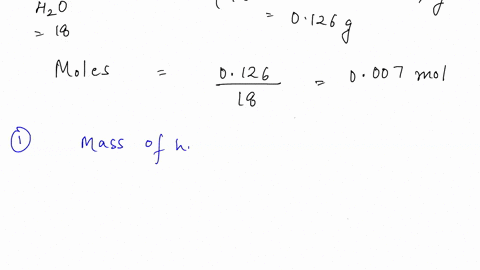 H2O
= 18
= 0.126 g
Moles = 0.126 / 18 = 0.007 mol
① Mass of h.